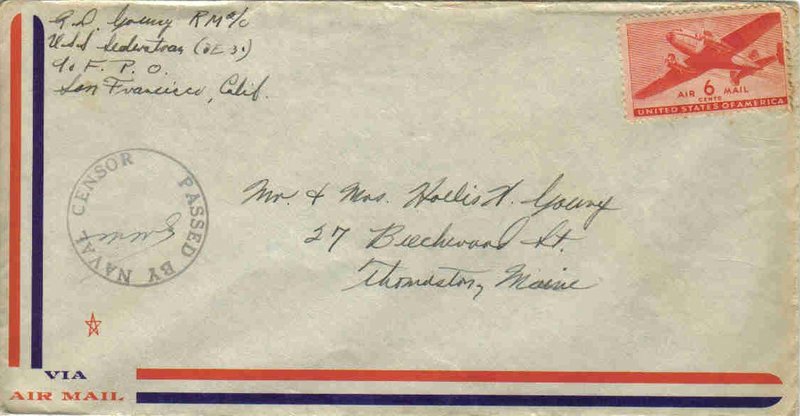 R. D. Young RM 2/c
U.S.S Sederstrom (DE 31)
% F. P. O.
San Francisco, Calif.
AIR 6 MAIL
CENTS
UNITED STATES OF AMERICA
PASSED BY NAVAL CENSOR
Mr. & Mrs. Hollis H. Young
27 Beechwood St.
Thomaston, Maine
VIA
AIR MAIL